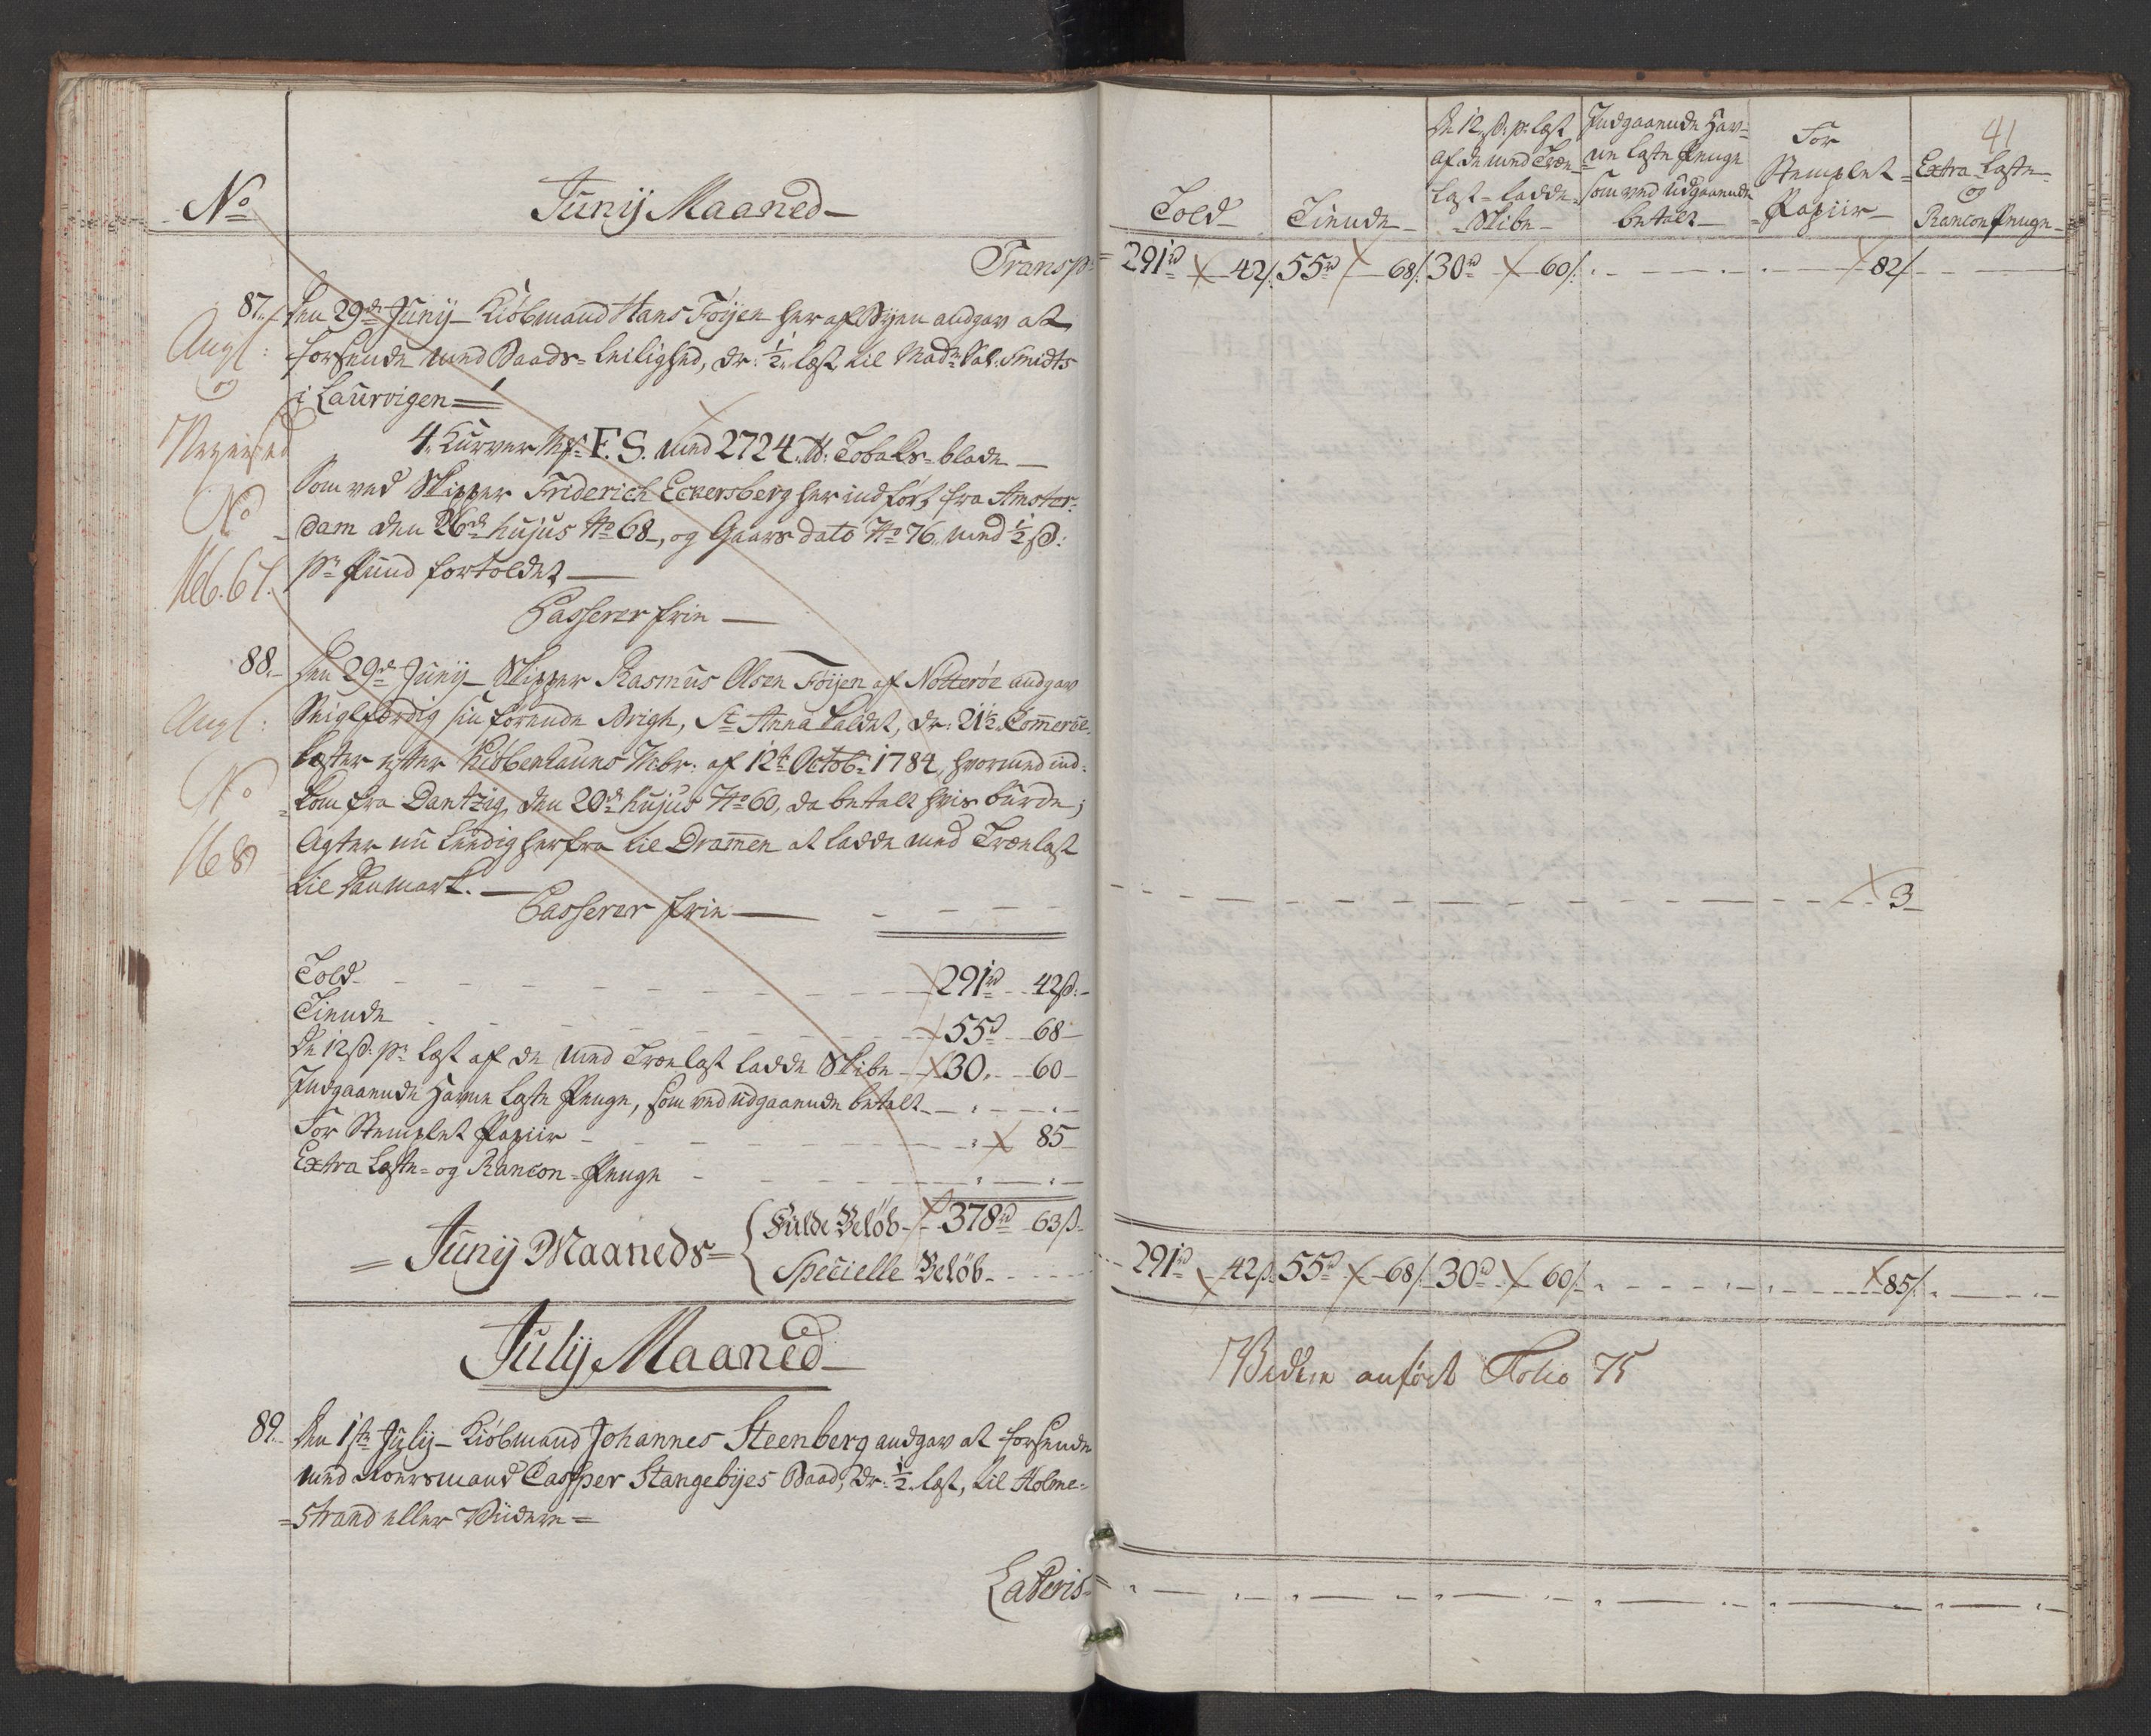 No
Junij Maaned
Transp:
87. Den 29de Junij Kiöbmand Hans Föyen her af Byen andgav at
forsende med Baads-Leilighed, dr: 1/2 læst til Madme Sal. Smidts
i Laurvigen
4 Kurver Mk: F. S. med 2724 lb: Tobaks-blade
Som ved Skipper Friderich Eckersberg her indført fra Amster-
dam den 26de hujus No 68, og Gaars dato No 76 med 1/2 s:
pr Pund fortoldet
Passerer frie
Angl:
og
No
166.67.
88. Den 29de Junij Skipper Rasmus Olsen Föyen af Nötteröe andgav
Seiglfærdig sin förende Brigh, St Anna kaldet, dr: 21 1/2 Commerce
læster efter Kiöbenhauns Mbr: af 12te Octob: 1784, hvormed ind-
kom fra Dantzig den 20de hujus No 60, da betalt hvis burde;
Agter nu leedig herfra til Drammen at ladde med Trælast
til Danmark.
Passerer frie
Angl:
No
168
Told 291rd 42s:
Tiende 55d 68
De 12s: pr læst af de med Trælast ladde Skibe 30. 60
Indgaaende Havne Læste Penge, som ved udgaaende betalt
For Stemplet Papiir 85
Extra Læste- og Rancon-Penge
Junij Maaneds
Fulde Belöb 378rd 63s
Specielle Belöb
July Maaned
89. Den 1ste July Kiöbmand Johannes Steenberg andgav at forsende
med Casper Stangebyes Baad, dr: 1/2 læst, til Holme-
strand eller Viidere
Lateris
41
Told
Tiende
De 12 s: pr: læst
af de med Træ-
last-ladde
Skibe
Indgaaende Hav-
ne læste Penge
som ved udgaaende
betalt
For
Stemplet
Papiir
Extra Læste
og
Rancon Penge
291rd 42s. 55rd 68s. 30d 60s. 82s
3
291rd 42s. 55d 68s. 30d 60s. 85s.
Videre anført Folio 75